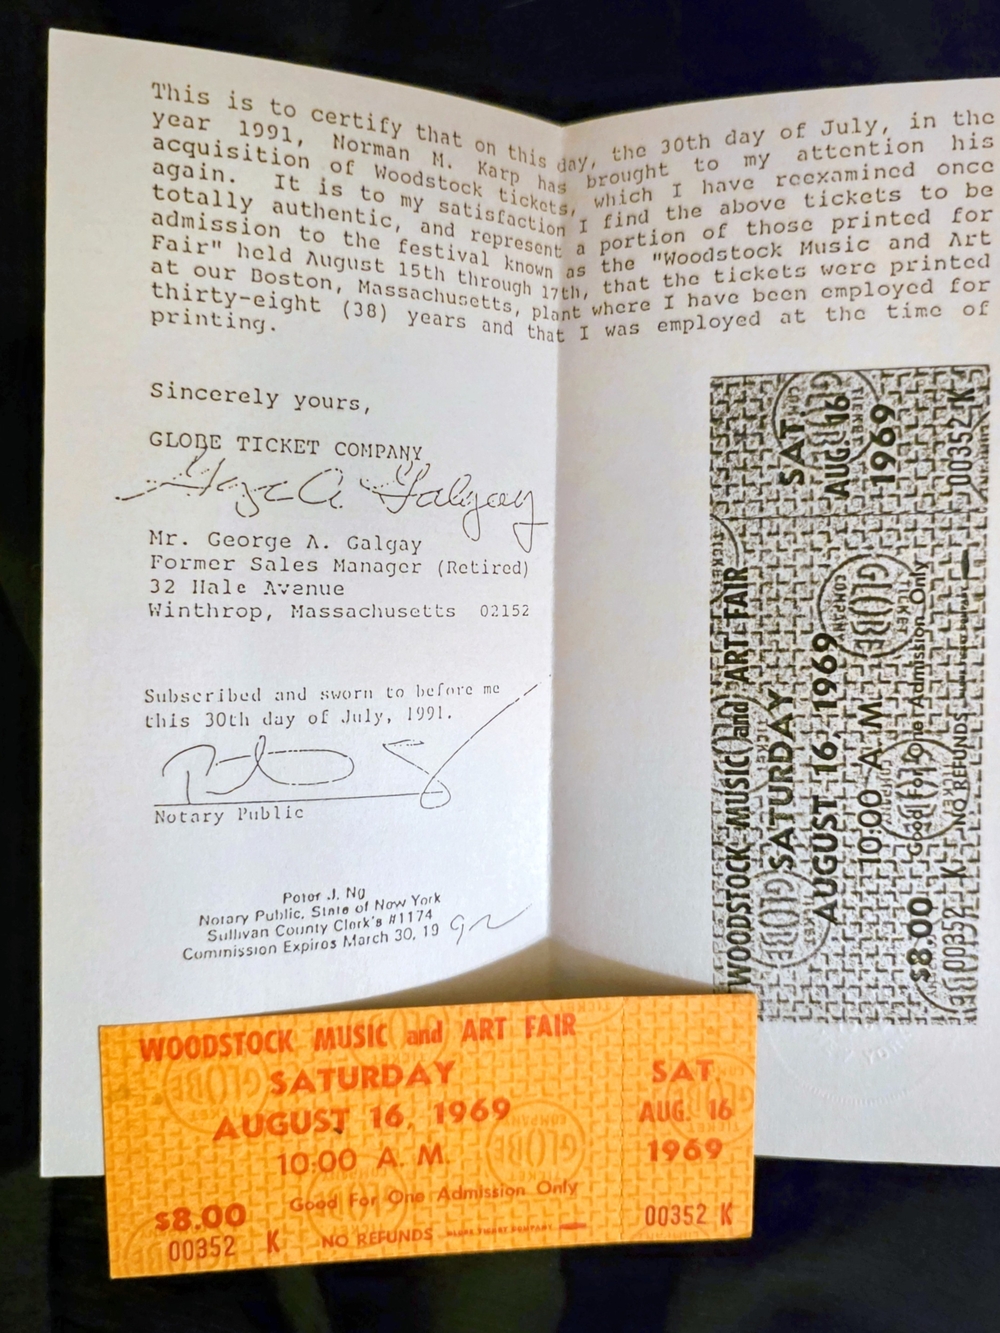 This is to certify that on this day, the 30th day of July, in the
year 1991, Norman M. Karp has brought to my attention his
acquisition of Woodstock tickets, which I have reexamined once
again. It is to my satisfaction I find the above tickets to be
totally authentic, and represent a portion of those printed for
admission to the festival known as the "Woodstock Music and Art
Fair" held August 15th through 17th, that the tickets were printed
at our Boston, Massachusetts, plant where I have been employed for
thirty-eight (38) years and that I was employed at the time of
printing.
Sincerely yours,
GLOBE TICKET COMPANY
George A. Galgay
Mr. George A. Galgay
Former Sales Manager (Retired)
32 Hale Avenue
Winthrop, Massachusetts 02152
Subscribed and sworn to before me
this 30th day of July, 1991.
Notary Public
Peter J. Ng
Notary Public, State of New York
Sullivan County Clerk's #1174
Commission Expires March 30, 19 92
WOODSTOCK MUSIC and ART FAIR
SATURDAY
AUGUST 16, 1969
10:00 A. M.
Good For One Admission Only
$8.00
00352 K NO REFUNDS
SAT.
AUG. 16
1969
00352 K
WOODSTOCK MUSIC and ART FAIR
SATURDAY
AUGUST 16, 1969
10:00 A. M.
Good For One Admission Only
$8.00
00352 K NO REFUNDS GLOBE TICKET COMPANY
SAT.
AUG. 16
1969
00352 K